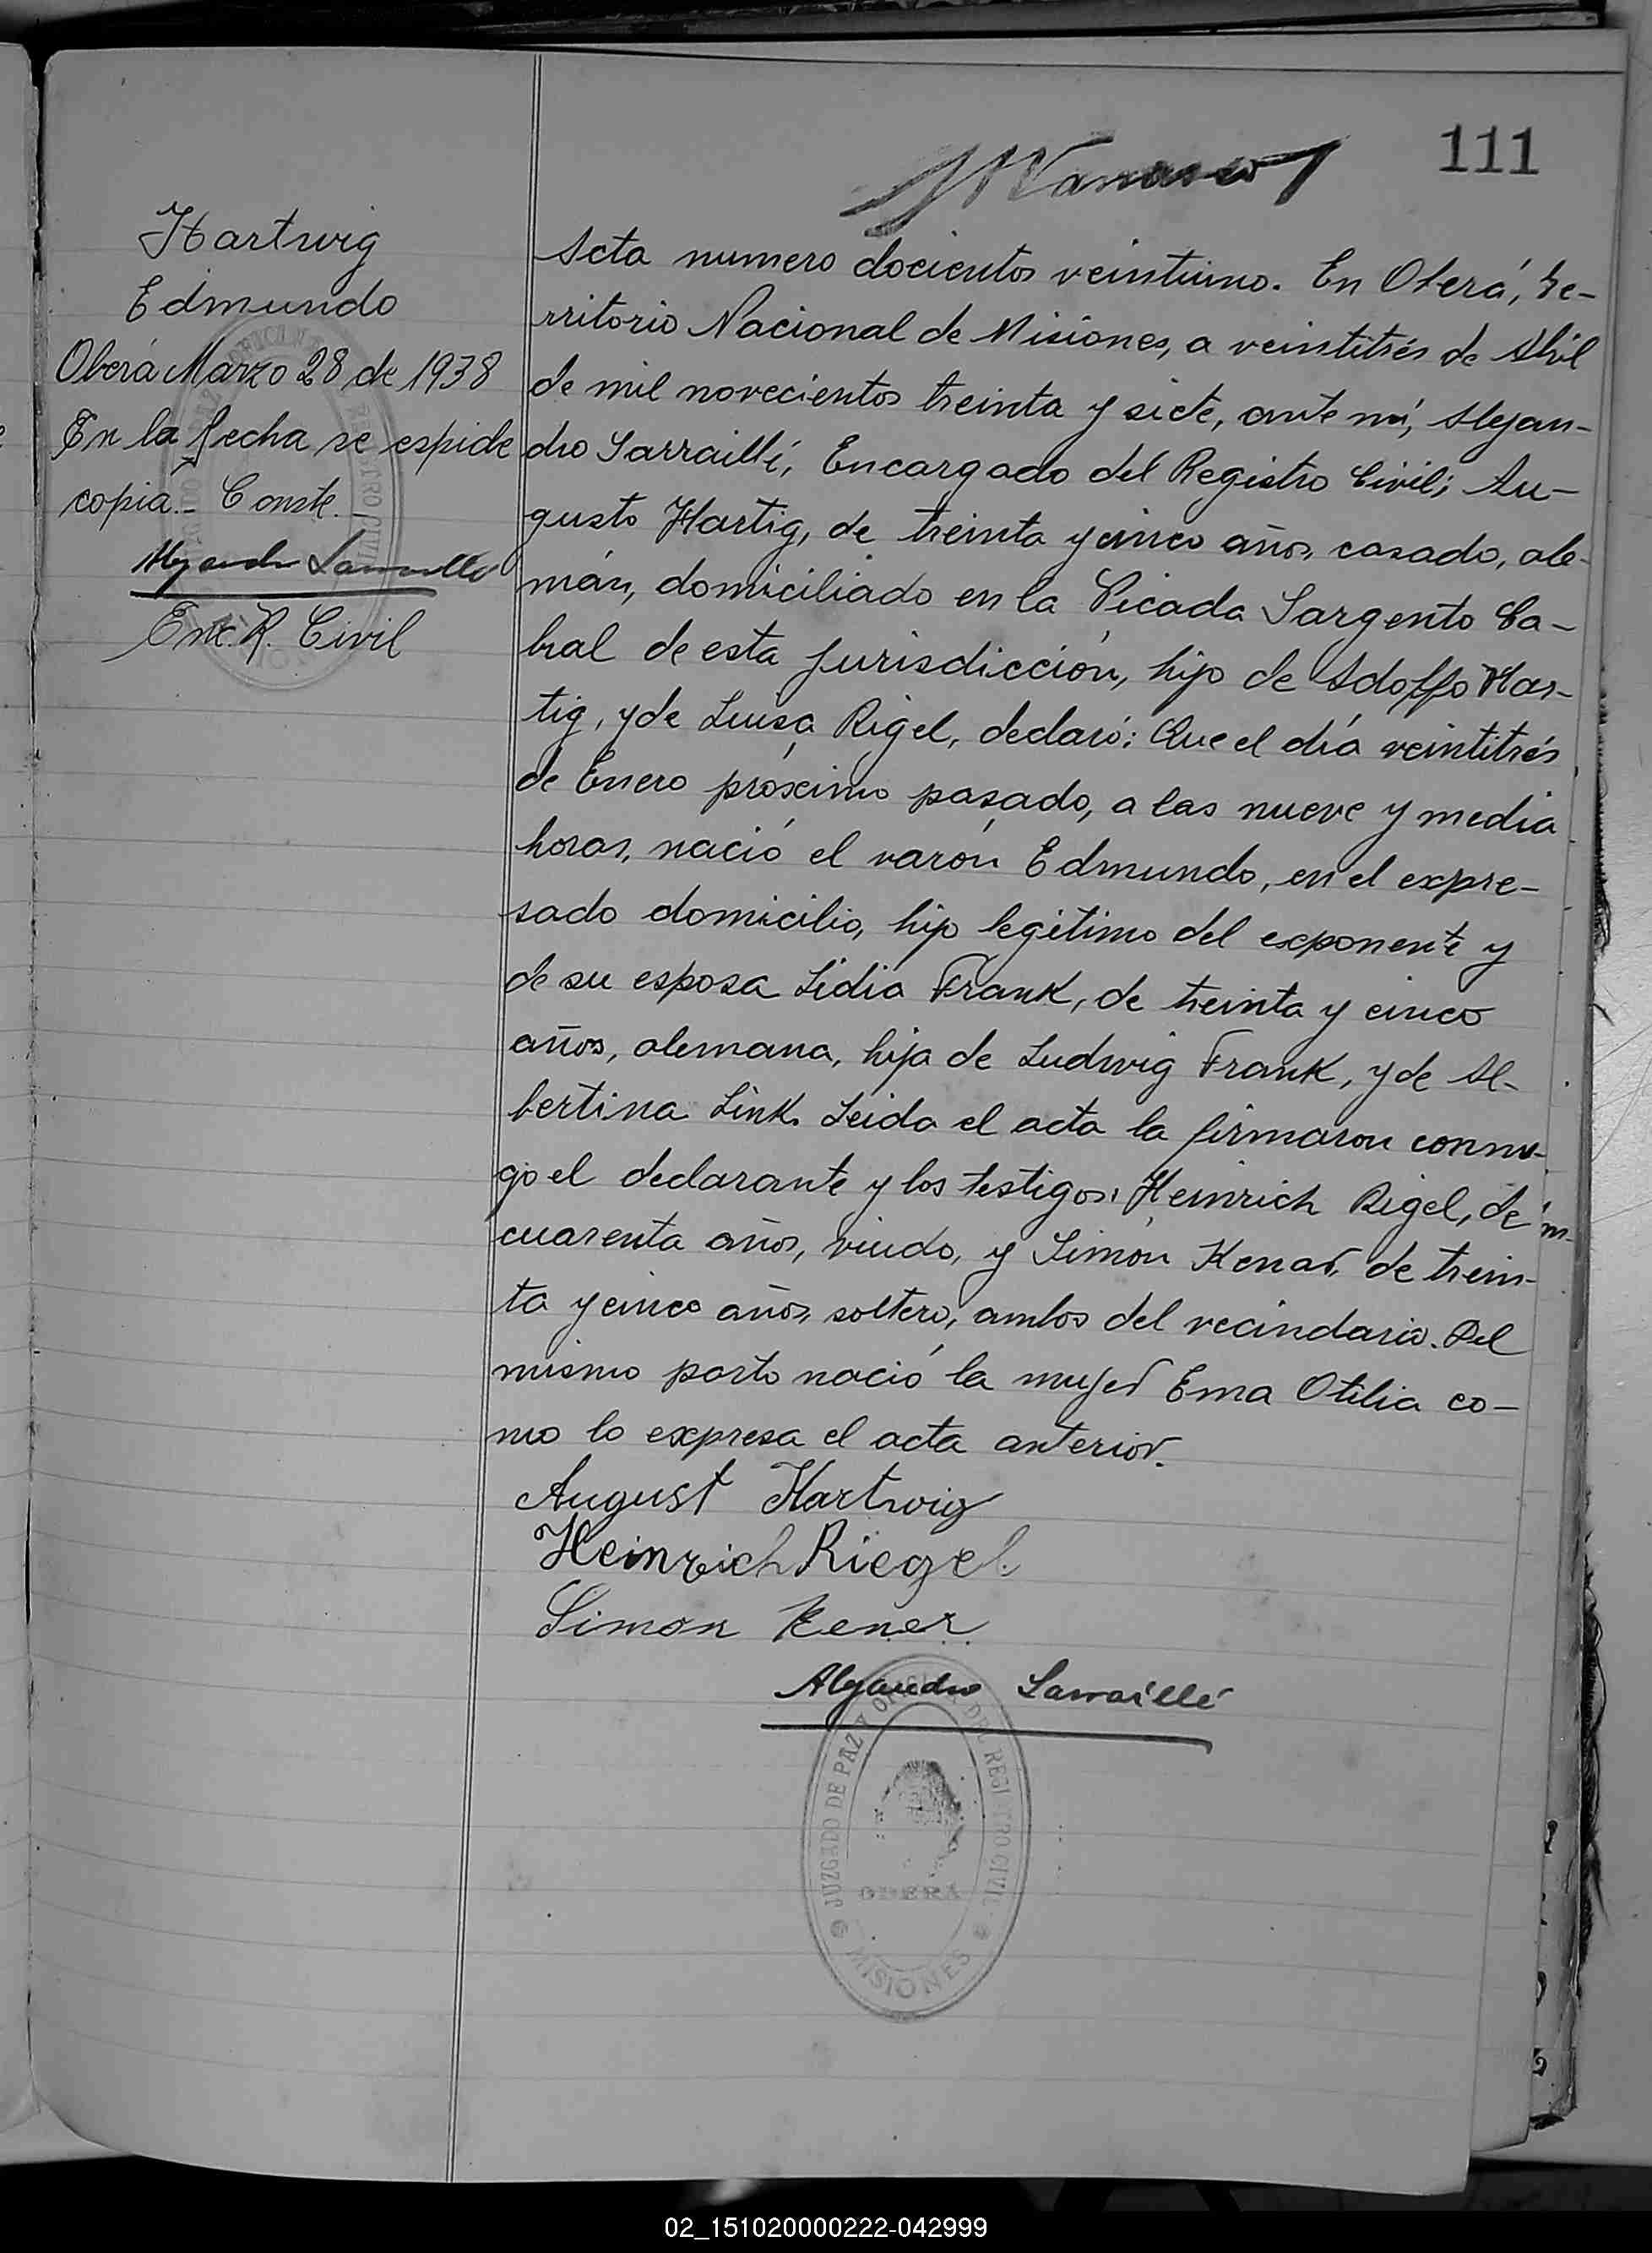 111
Hartwig
Edmundo
Oberá Marzo 28 de 1938
En la fecha se espide
copia.- Conste.
Alejandro Sarraillé
Enc. R. Civil
Acta numero docientos veintiuno. En Oberá, te-
rritorio Nacional de Misiones, a veintitrés de Abril
de mil novecientos treinta y siete, ante mí, Alejan-
dro Sarraillé, Encargado del Registro Civil; Au-
gusto Hartig, de treinta y cinco años, casado, ale-
mán, domiciliado en la Picada Sargento Ca-
bral de esta jurisdicción, hijo de Adolfo Har-
tig, y de Luisa Rigel, declaró: Que el día veintitrés
de Enero próximo pasado, a las nueve y media
horas, nació el varón Edmundo, en el expre-
sado domicilio, hijo legítimo del exponente y
de su esposa Lidia Frank, de treinta y cinco
años, alemana, hija de Ludwig Frank, y de Al-
bertina Link. Leida el acta la firmaron conmi-
go el declarante y los testigos: Heinrich Rigel, de
cuarenta años, viudo, y Simón Kenar, de trein-
ta y cinco años, soltero, ambos del vecindario. Del
mismo parto nació la mujer Ema Otilia co-
mo lo expresa el acta anterior.
August Hartwig
Heinrich Riegel
Simon Kener
Alejandro Sarraillé
JUZGADO DE PAZ Y OFICINA DEL REGISTRO CIVIL
OBERA
MISIONES
02_151020000222-042999